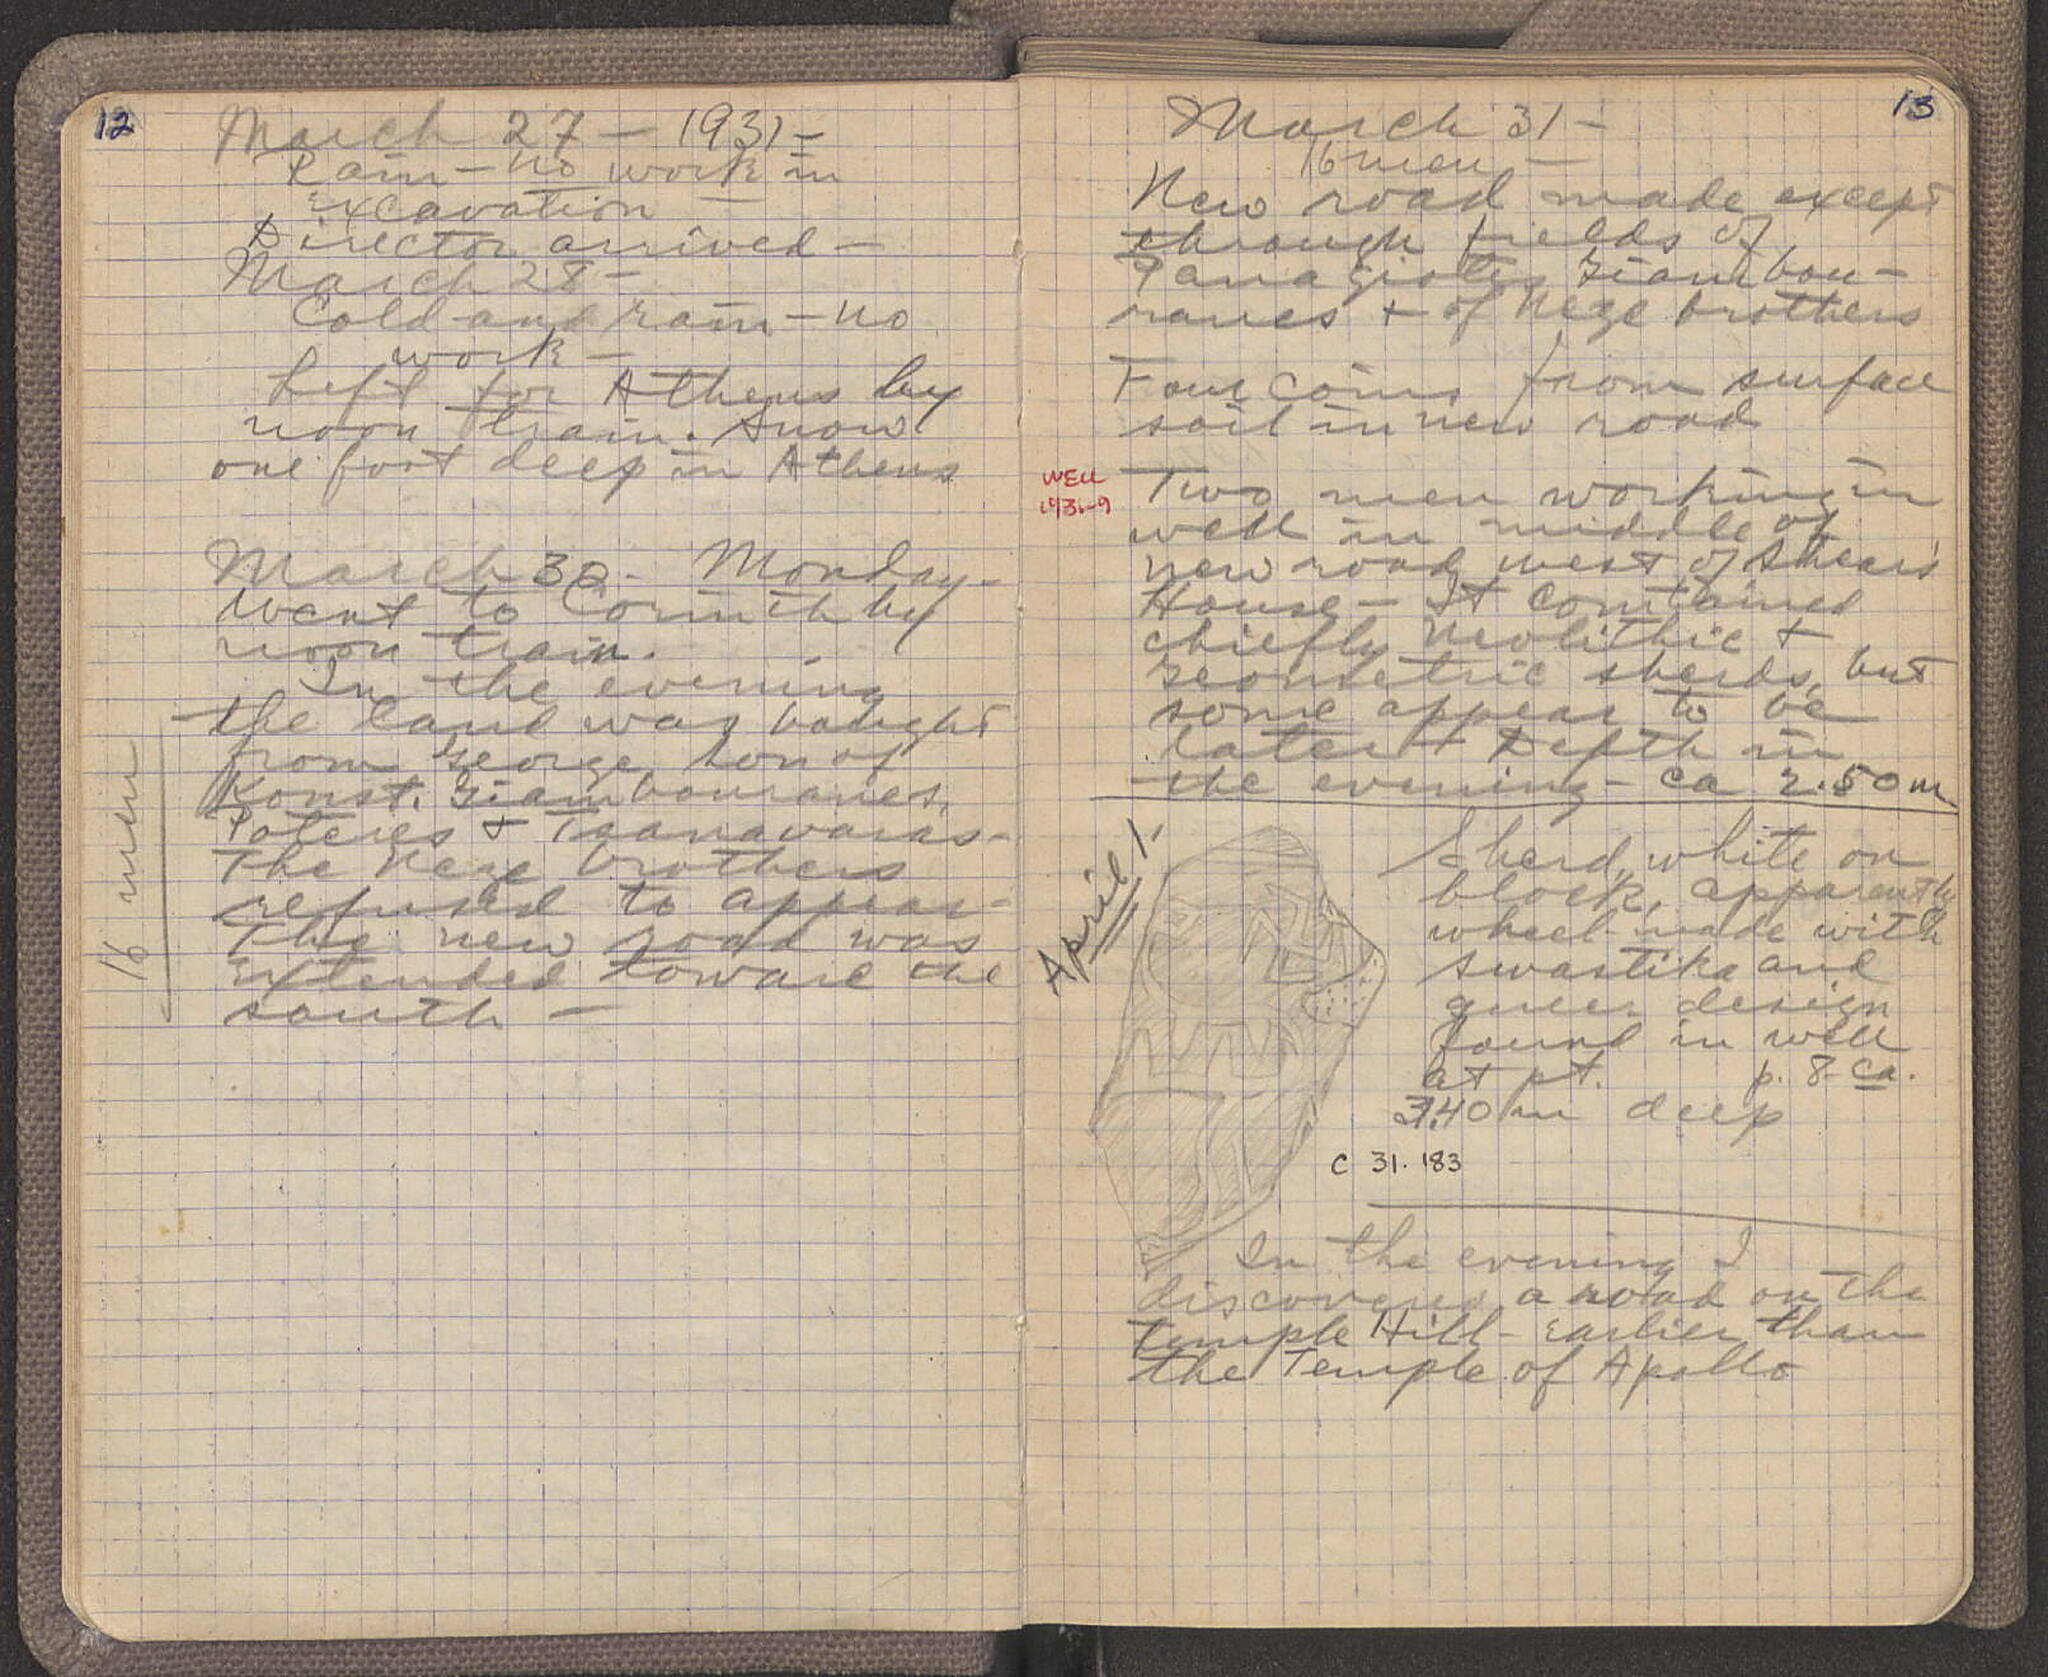 12
March 27 – 1931 –
Rain – no work in
excavation –
Director arrived –
March 28 –
Cold and rain – no
work –
Left for Athens by
noon train. Snow
one foot deep in Athens
March 30 – Monday –
Went to Corinth by
noon train.
In the evening
the land was bought
from George son of
Konst. Giambouranes,
Poteres & Tsanavaras –
The Neze brothers
refused to appear –
The new road was
extended toward the
south –
16 men
13
March 31 –
16 men –
New road made except
through fields of
Panagiotes Giambou-
ranes + of Neze brothers
Four coins from surface
soil in new road
WELL
1931-9
Two men working in
well in middle of
new road west of Shears'
House – It contained
chiefly Neolithic +
Geometric sherds, but
some appear to be
later + Depth in
the evening – ca 2.50 m
April 1.
Sherd, white on
black, apparently
wheel-made with
swastika and
queer design
found in well
at pt. p. 8 ca.
3.40 m deep
C 31. 183
In the evening I
discovered a road on the
Temple Hill – Earlier than
the Temple of Apollo